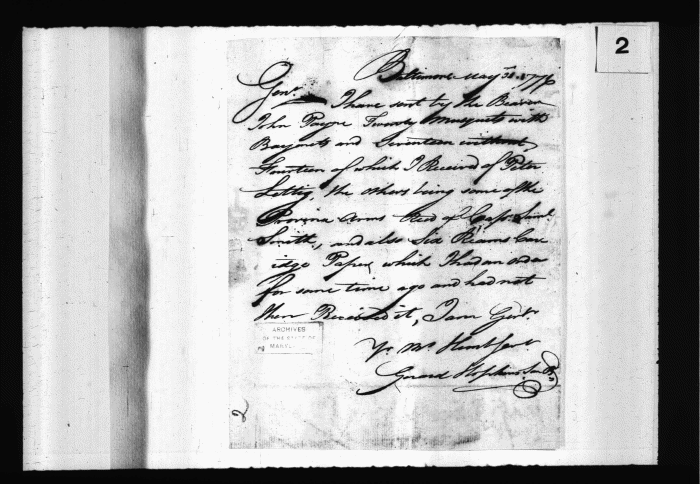 2
Baltimore May 31st 1776
Gentn
I have sent by the Bearer
John Payne Twenty Musquets with
Bayonets and Seventeen without,
Fourteen of which I Receivd of Peter
Littig, the others being some of the
Provina Arms Recd of Capt Saml
Smith, and also Six Reams Cart
idge Paper, which I had an order
for some time ago and had not
then Received it, I am Gentn
Yr Mo Hum Sert
Gerard Hopkins
ARCHIVES
OF THE STATE OF
2